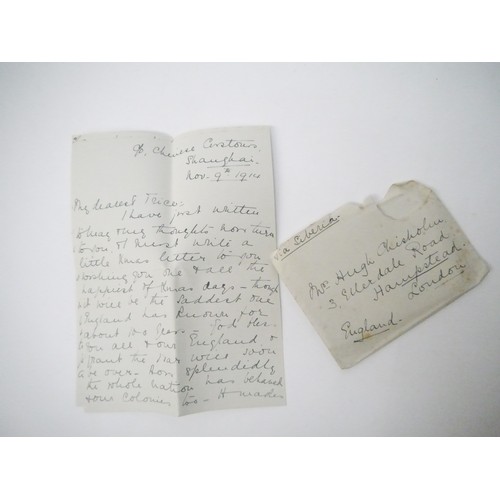 ℅ Chinese Customs.
Shanghai.
Nov. 9th 1914
My dearest
I have just written
thoughts
to you & must write a
little Xmas letter to you
wishing you one & all the
happiest of Xmas days - though
it will be the saddest one
England has known for
about 100 years - God
you all & our England &
grant the War will soon
be over - How splendidly
the whole nation has behaved
& our Colonies too - It makes
via Siberia.
Mrs Hugh Chisholm
3, Ellerdale Road
Hampstead.
London
England.